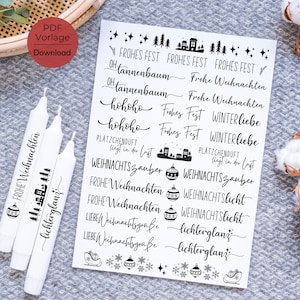 PDF
Vorlage
Download
FROHES FEST FROHES FEST FROHES FEST
OH tannenbaum Frohe Weihnachten
OH tannenbaum Frohe Weihnachten
hohoho Frohes Fest WINTERliebe
hohoho Frohes Fest WINTERliebe
PLÄTZCHENDUFT
liegt in der Luft
WEIHNACHTSzauber
WEIHNACHTSzauber
FROHE Weihnachten WEIHNACHTSlicht
FROHE Weihnachten WEIHNACHTSlicht
LIEBE Weihnachtsgrüße lichterglanz
LIEBE Weihnachtsgrüße lichterglanz
FROHE Weihnachten
lichterglanz